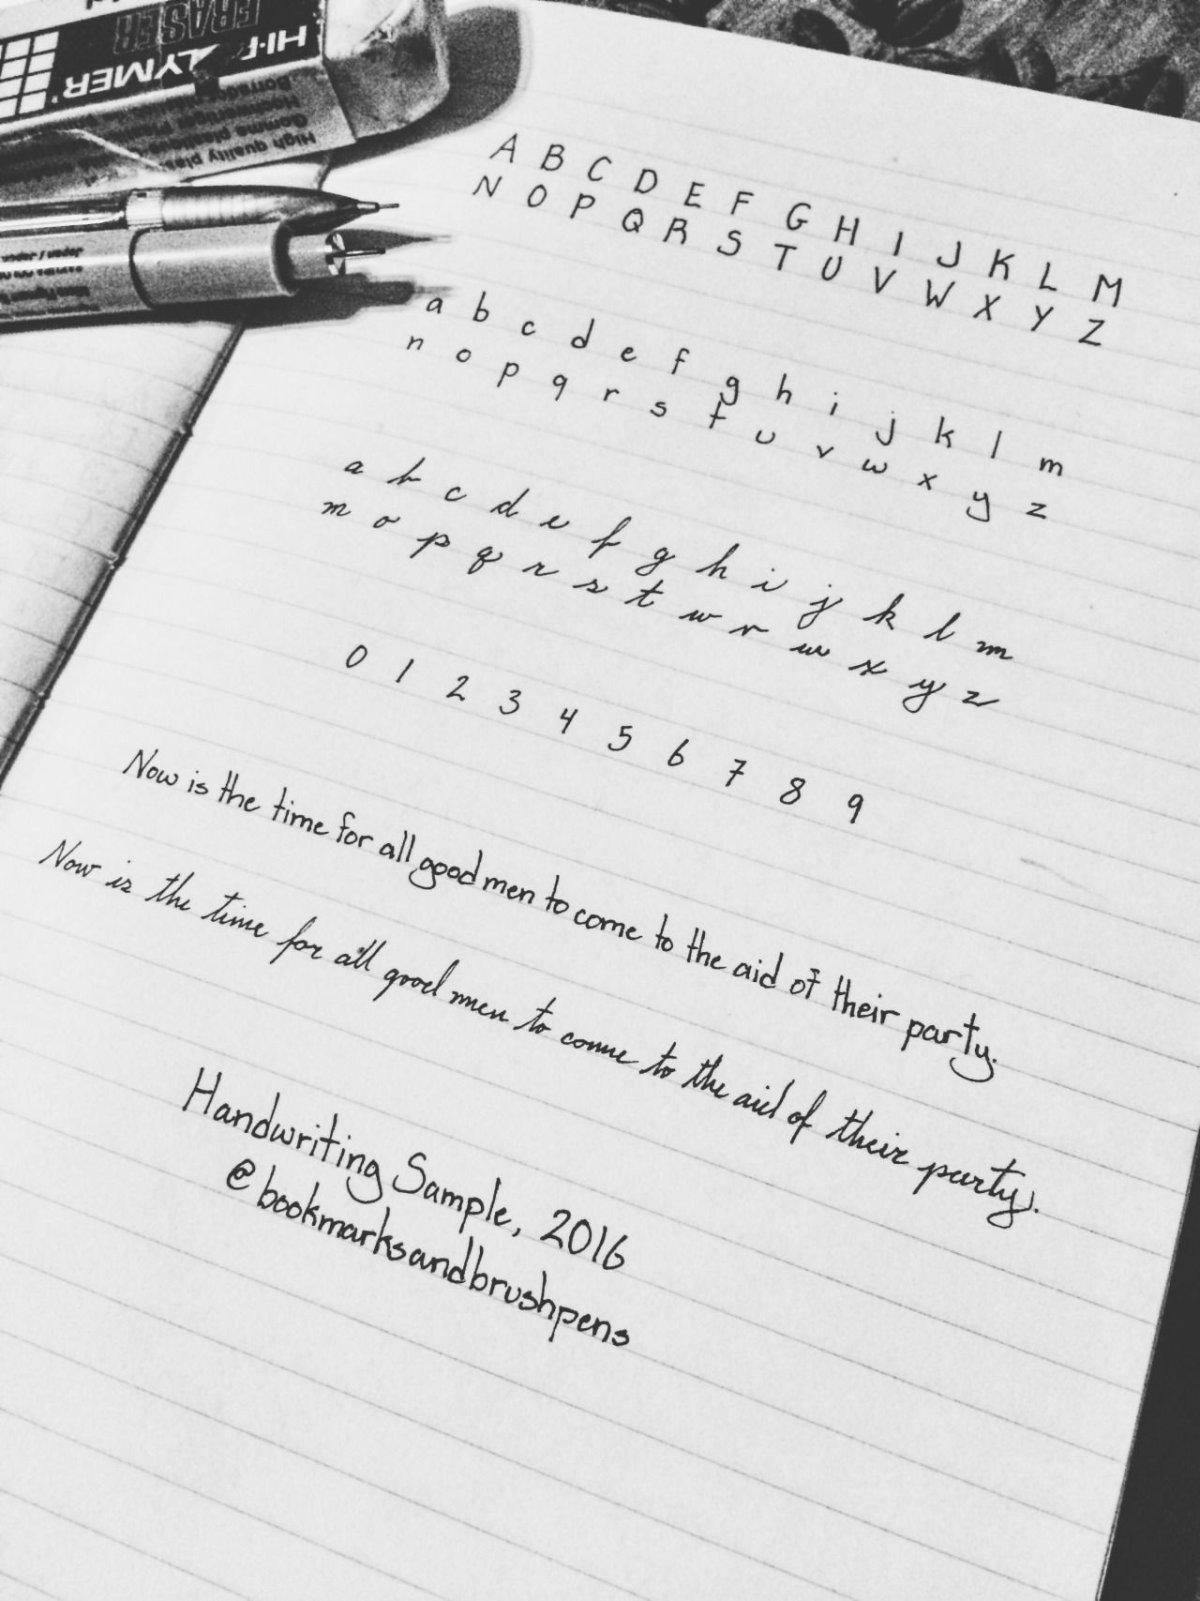 HI-POLYMER
ERASER
High quality plas
A B C D E F G H I J K L M
N O P Q R S T U V W X Y Z
a b c d e f g h i j k l m
n o p q r s t u v w x y z
a b c d e f g h i j k l m
n o p q r s t u v w x y z
0 1 2 3 4 5 6 7 8 9
Now is the time for all good men to come to the aid of their party.
Now is the time for all good men to come to the aid of their party.
Handwriting Sample, 2016
@bookmarksandbrushpens